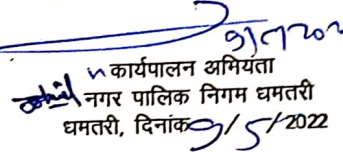 कार्यपालन अभियंता
नगर पालिक निगम धमतरी
धमतरी, दिनांक 9/5/2022